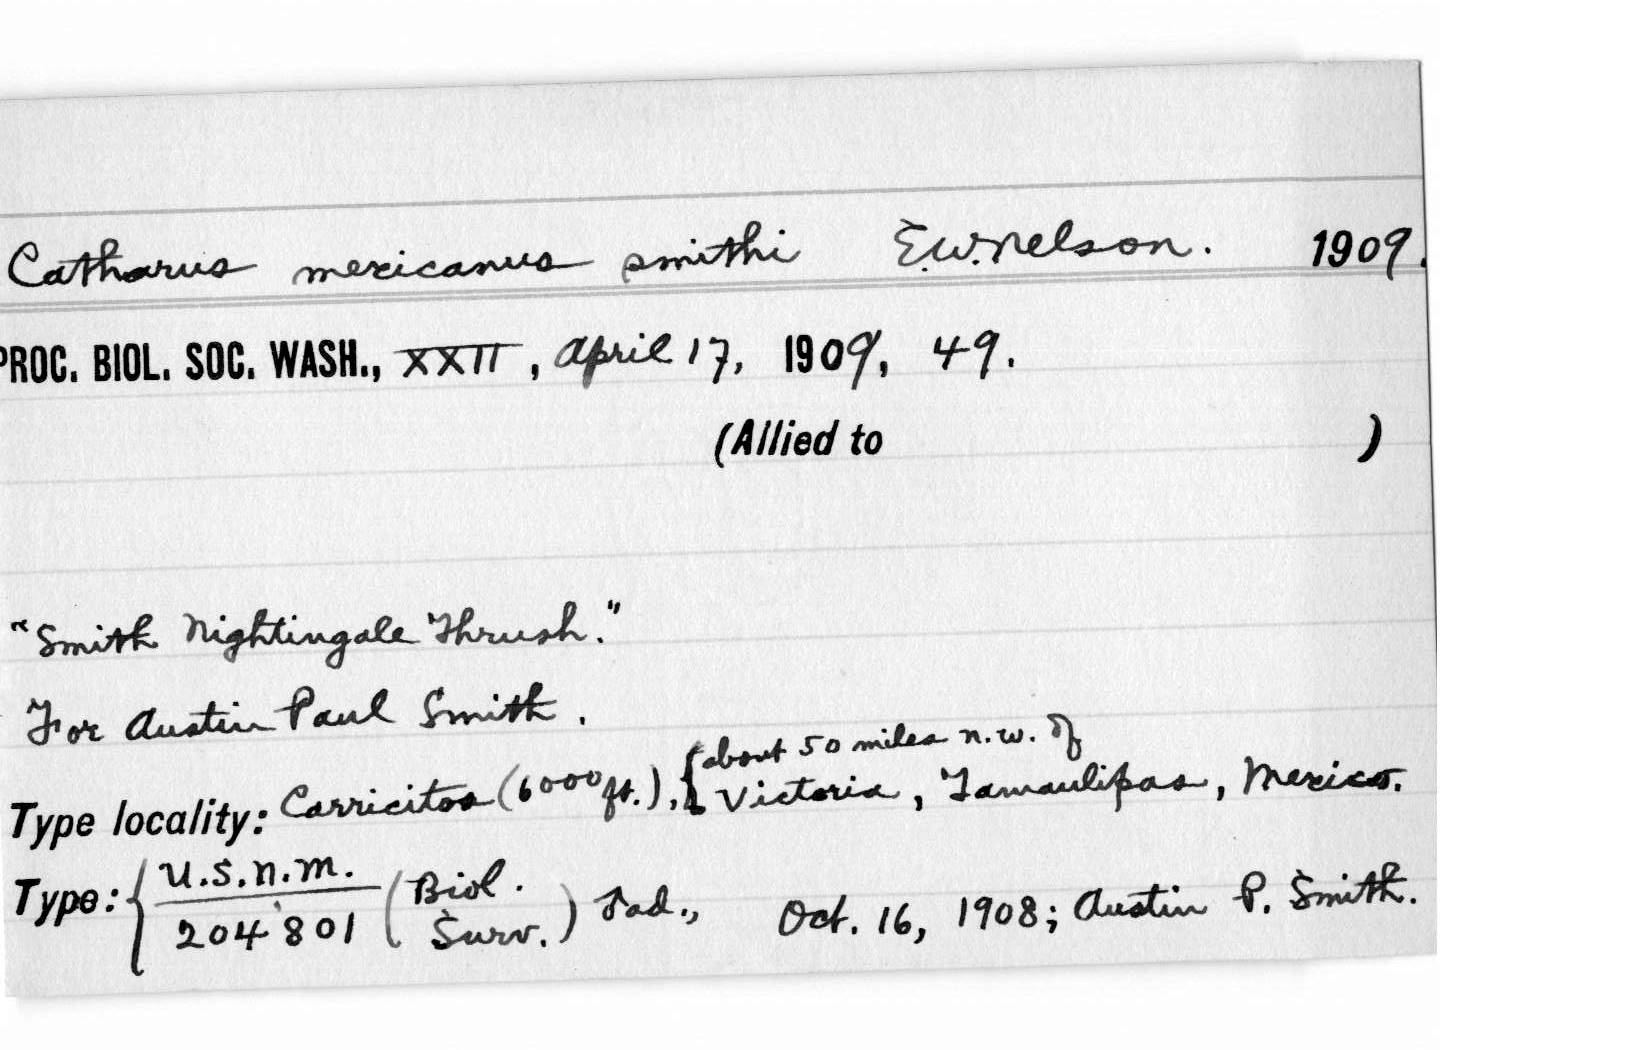 Catharus mexicanus smithi E.W. Nelson. 1909.
PROC. BIOL. SOC. WASH., XXII, April 17, 1909, 49.
(Allied to )
"Smith Nightingale Thrush."
For Austin Paul Smith.
about 50 miles n.w. of
Type locality: Carricitos (6000 ft.), { Victoria, Tamaulipas, Mexico.
Type: { U.S.N.M. (Biol.
204801 Surv.) ad., Oct. 16, 1908; Austin P. Smith.